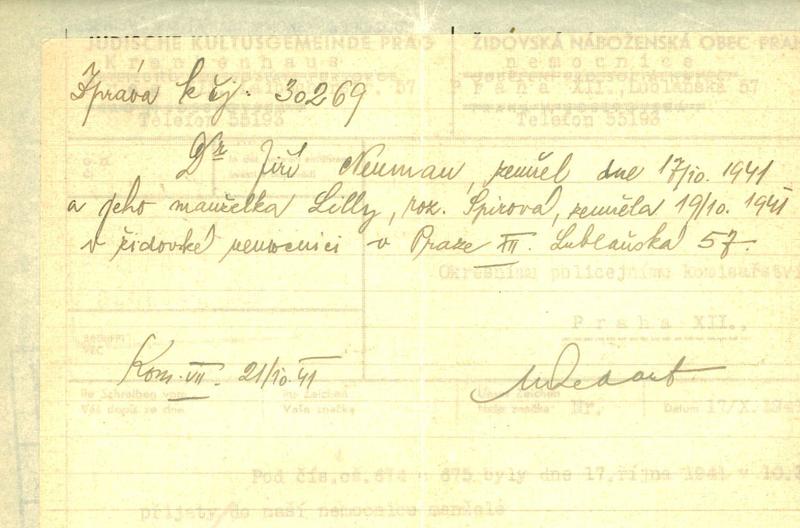 JÜDISCHE KULTUSGEMEINDE PRAG
ŽIDOVSKÁ NÁBOŽENSKÁ OBEC PRAH
Krankenhaus
nemocnice
57
Praha XII., Lublaňská 57
Zpráva k čj. 30269
Telefon 55193
Telefon 55193
Dr Jiří Neuman, zemřel dne 17/10. 1941
a jeho manželka Lilly, roz. Spirová, zemřela 19/10. 1941
v židovské nemocnici v Praze XII. Lublaňská 57.
Okresnímu policejnímu komisařství
Praha XII.,
BETRIFFT
VĚC
Kom. VII. 21/10. 41
Ihr Schreiben vom
Ihr Zeichen
Unser Zeichen
Váš dopis ze dne
Vaše značka
Naše značka Nr.
Datum 17/X. 194
Pod čís. oš. 674 a 675 byly dne 17. října 1941 v 10.3
přijaty do naší nemocnice manželé